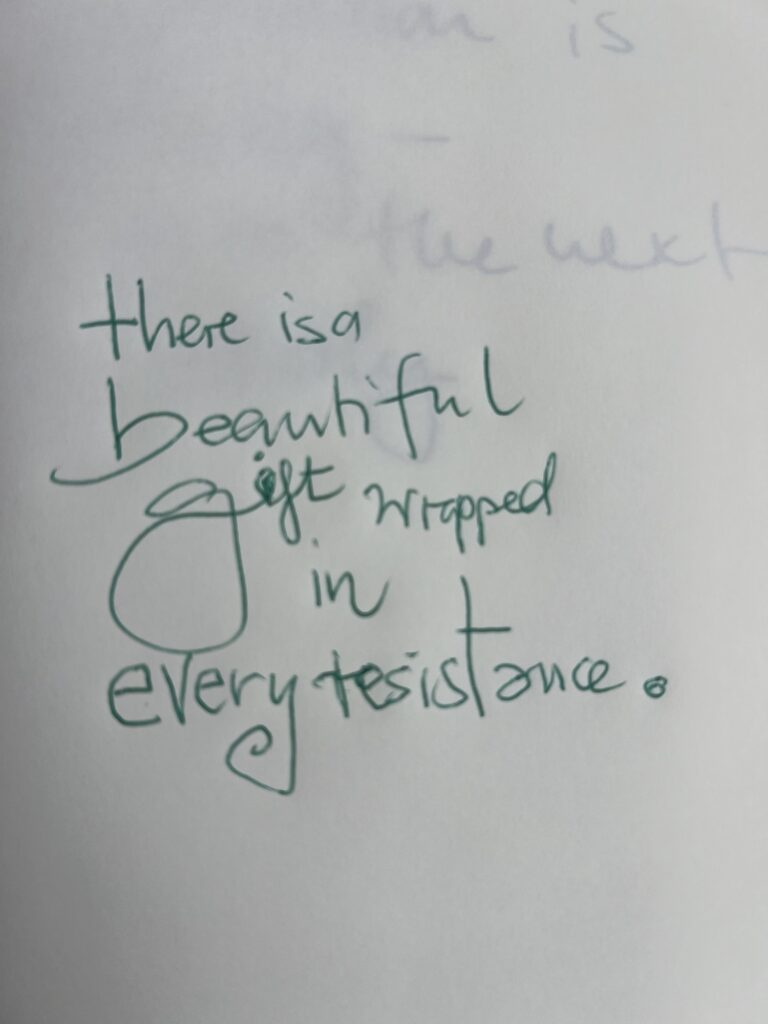 an is
the next
there is a
beautiful
gift wrapped
in
every resistance.